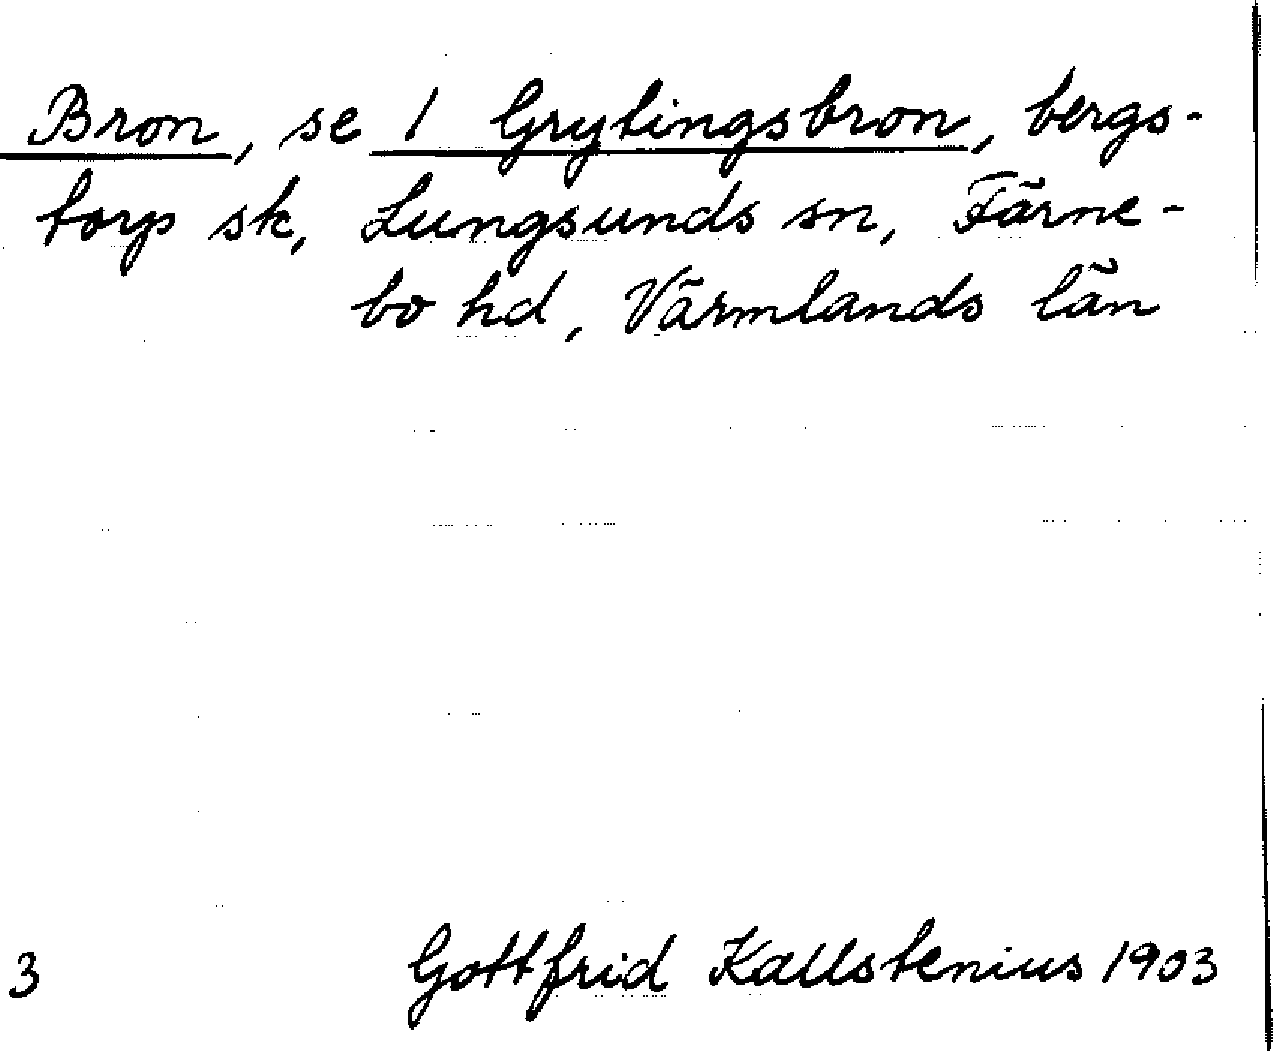 Bron, se 1 Grytingsbron, bergs-
torp sk, Lungsunds sn, Färne-
bo hd, Värmlands län
3 Gottfrid Kallstenius 1903